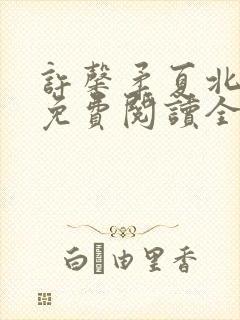 許馨矛夏北
免費閱讀全
白 由里香